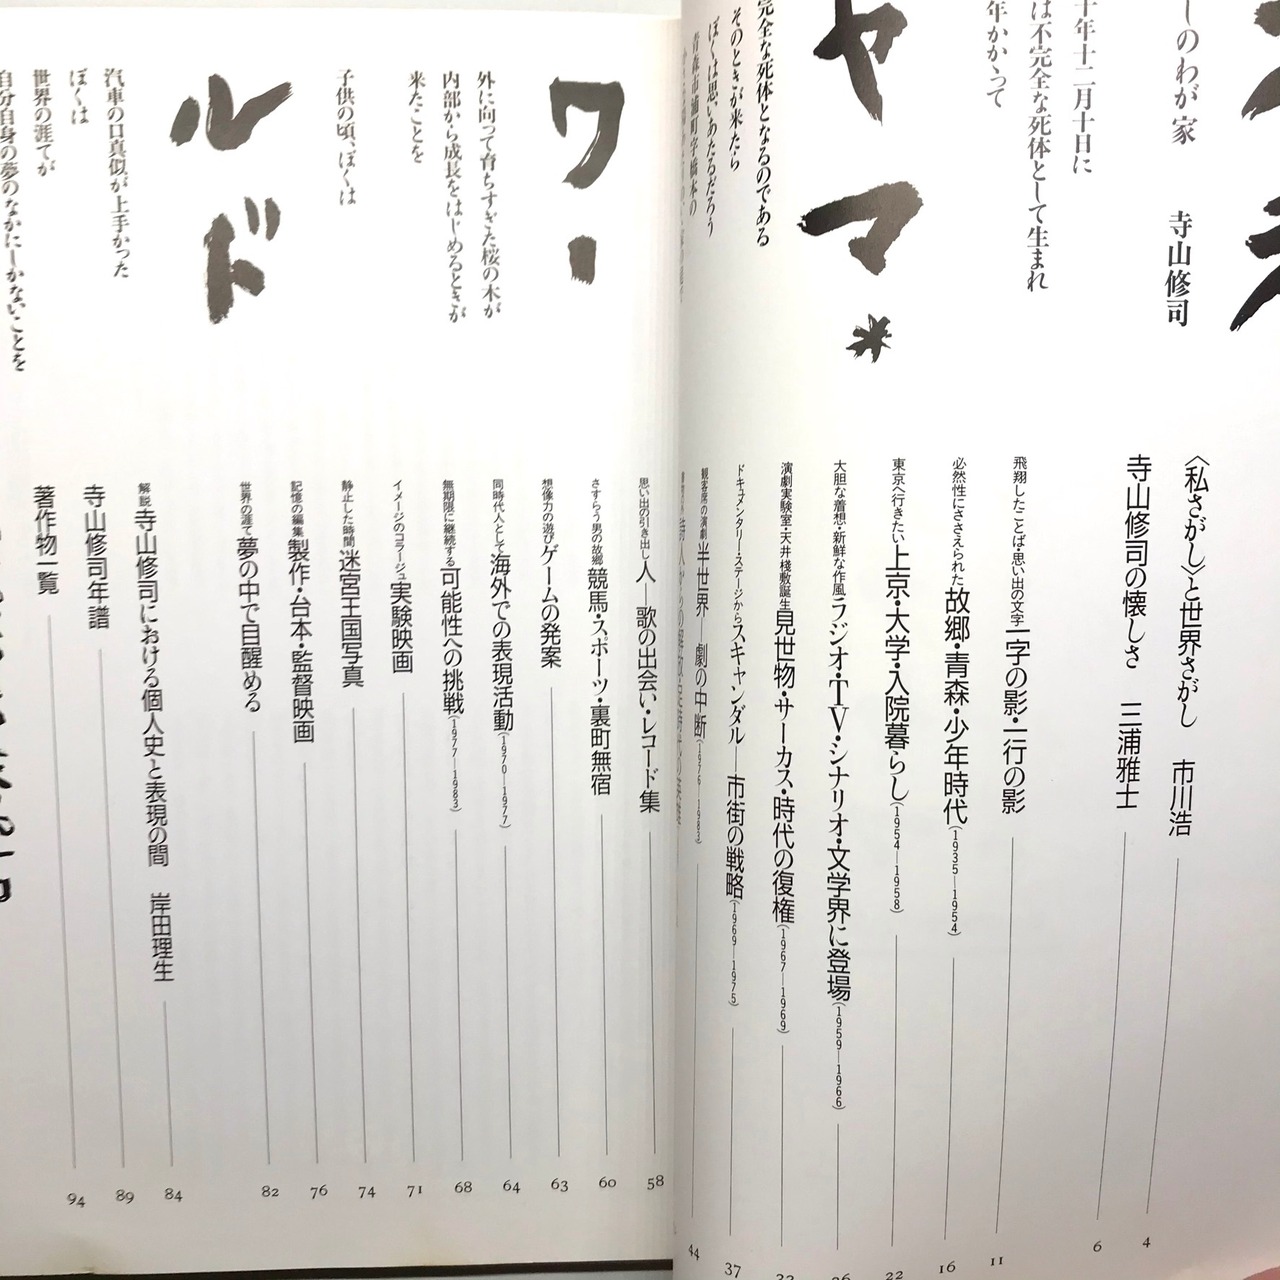 ヤマ*
ワールド
しのわが家 寺山修司
十年十二月十日に
は不完全な死体として生まれ
年かかって
完全な死体となるのである
そのときが来たら
ぼくは思いあたるだろう
青森市浦町字橋本の
外に向って育ちすぎた桜の木が
内部から成長をはじめるときが
来たことを
子供の頃、ぼくは
汽車の口真似が上手かった
ぼくは
世界の涯てが
自分自身の夢のなかにしかないことを
〈私さがし〉と世界さがし 市川浩 4
寺山修司の懐しさ 三浦雅士 6
飛翔したことば・思い出の文字 一字の影・一行の影 11
必然性にささえられた 故郷・青森・少年時代(1935—1954) 16
東京へ行きたい 上京・大学・入院暮らし(1954—1958) 22
大胆な着想・新鮮な作風 ラジオ・TV・シナリオ・文学界に登場(1959—1966)
演劇実験室・天井棧敷誕生 見世物・サーカス・時代の復権(1967—1969)
ドキュメンタリー・ステージから スキャンダル——市街の戦略(1969—1975) 37
観客席の演劇 半世界——劇の中断(1976—1983) 44
思い出の引き出し 人—歌の出会い・レコード集 58
さすらう男の故郷 競馬・スポーツ・裏町無宿 60
想像力の遊び ゲームの発案 63
同時代人として 海外での表現活動(1970—1977) 64
無期限に継続する 可能性への挑戦(1977—1983) 68
イメージのコラージュ 実験映画 71
静止した時間 迷宮王国写真 74
記憶の編集 製作・台本・監督映画 76
世界の涯て 夢の中で目醒める 82
解説 寺山修司における個人史と表現の間 岸田理生 84
寺山修司年譜 89
著作物一覧 94